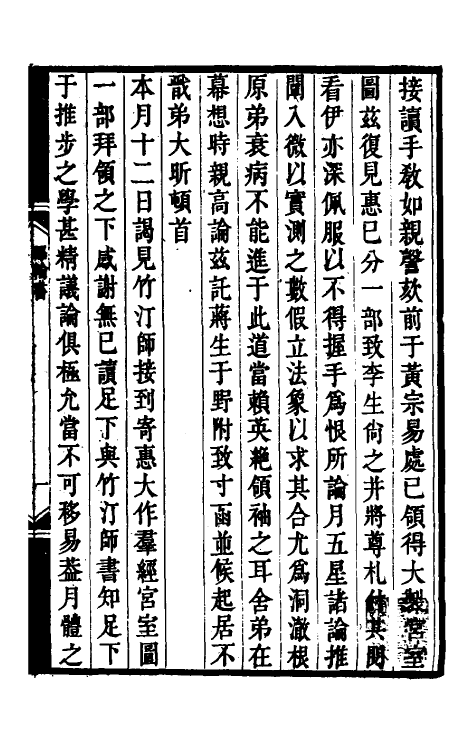 接讀手敎如親謦欬前于黃宗易處已領得大製宮室
圖兹復見惠已分一部致李生尙之并將尊札付其閱
看伊亦深佩服以不得握手爲恨所論月五星諸論推
闡入微以實測之數假立法象以求其合尤爲洞澈根
原弟衰病不能進于此道當賴英絶領袖之耳舍弟在
幕想時親高論兹託蔣生于野附致寸函並候起居不
戬弟大昕頓首
本月十二日謁見竹汀師接到寄惠大作羣經宮室圖
一部拜領之下感謝無已讀足下與竹汀師書知足下
于推步之學甚精議論俱極允當不可移易葢月體之
一